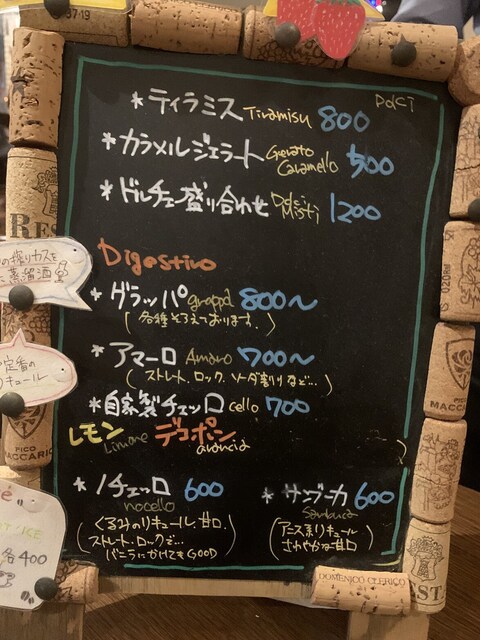 Dolci
*ティラミス Tiramisu 800
*カラメルジェラート Gerato Caramello 500
*ドルチェ盛り合わせ Dolci Misti 1200
Digestivo
*グラッパ grappa 800〜
(各種そろえております。)
*アマーロ Amaro 700〜
(ストレート、ロック、ソーダ割りなど…)
*自家製チェッロ cello 700
レモン Limone デコポン arancia
*ノチェッロ 600
nocello
(くるみのリキュール、甘口、
ストレート、ロックで…
バニラにかけてもGOOD)
*サンブーカ 600
Sambuca
(アニス系リキュール
さわやかな甘口)
の搾りカスを
蒸留酒
定番の
リキュール
ICE
各400
REST
PICO
MACCARIO
PICO
MACCARIO
DOMENICO CLERICO
EST